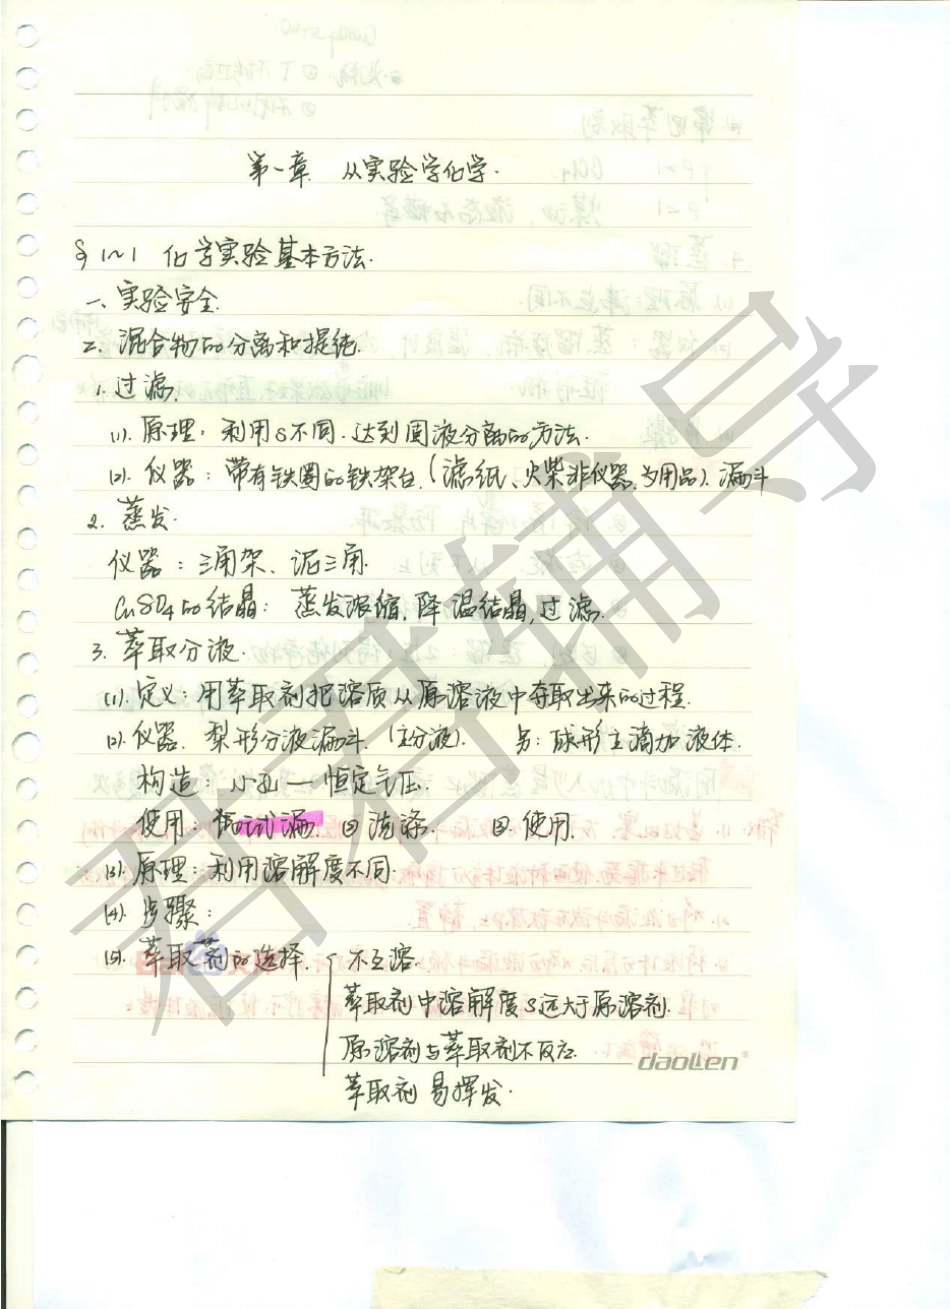 第一章. 从实验学化学.
§1~1 化学实验基本方法.
一、实验安全.
二、混合物的分离和提纯.
1. 过滤.
(1). 原理: 利用S不同. 达到固液分离的方法.
(2). 仪器: 带有铁圈的铁架台. (滤纸、火柴非仪器, 为用品). 漏斗
2. 蒸发.
仪器: 三角架、泥三角.
CuSO4的结晶: 蒸发浓缩, 降温结晶, 过滤.
3. 萃取分液.
(1). 定义: 用萃取剂把溶质从原溶液中夺取出来的过程.
(2). 仪器. 梨形分液漏斗. (主分液). 另: 球形主滴加液体.
构造: 小孔— 恒定气压.
使用: ①试漏 ②洗涤. ③使用.
(3). 原理: 利用溶解度不同.
(4). 步骤:
(5). 萃取剂的选择. 不互溶.
萃取剂中溶解度S远大于原溶剂.
原溶剂与萃取剂不反应.
daoLen®
萃取剂易挥发.
君君辅导